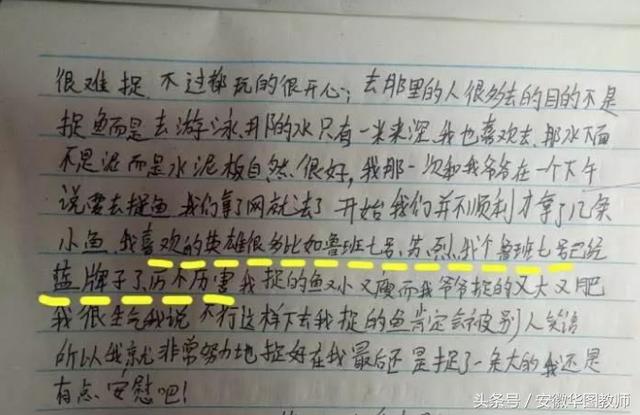 很难捉,不过都玩的很开心;去那里的人很多去的目的不是
捉鱼而是去游泳,那的水只有一米来深,我也喜欢去,那水下面
不是泥而是水泥板自然很好,我那一次和我爷爷在一个下午
说要去捉鱼,我们拿了网就去了,开始我们并不顺利才拿了几条
小鱼,我喜欢的英雄很多比如鲁班七号、苏烈,我个鲁班七号已经
蓝牌子了,厉不厉害,我捉的鱼又小又瘦而我爷爷捉的又大又肥
我很生气我说,不行这样下去我捉的鱼肯定会被别人笑话
所以我就非常努力地捉好在我最后还是捉了一条大的我还是
有点安慰吧!
头条号/安徽华图教师